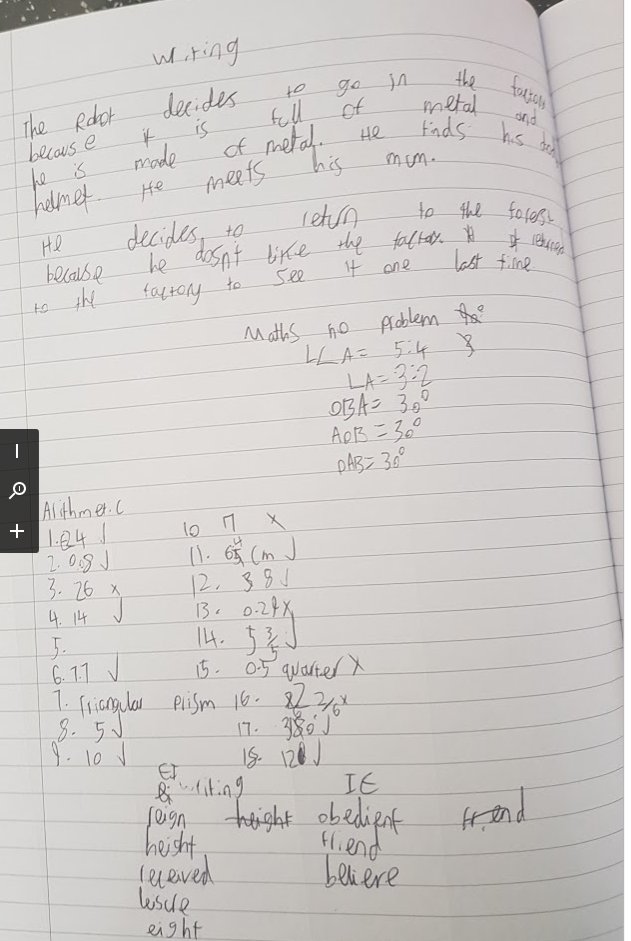 Writing
The Robot decides to go in the factory
because it is full of metal and
he is made of metal. He finds his
helmet. He meets his mum.
He decides to return to the forest
because he dosn't like the factory returned
to the factory to see it one last time
Maths no problem
LLA= 5:4
LA=3:2
OBA= 30°
AOB=30°
OAB=30°
Arithmetic
1. 84 ✓
2. 0.8 ✓
3. 26 x
4. 14 ✓
5.
6. 7.7 ✓
7. Triangular prism
8. 5 ✓
9. 10 ✓
10 7 x
11. cm ✓
12. 38 ✓
13. 0.24 x
14. 5 3/5 ✓
15. 0.5 quarter x
16. 2/6 x
17. ✓
18. 120 ✓
EI
writing
reign height
height
received
eight
IE
obedient friend
friend
believe